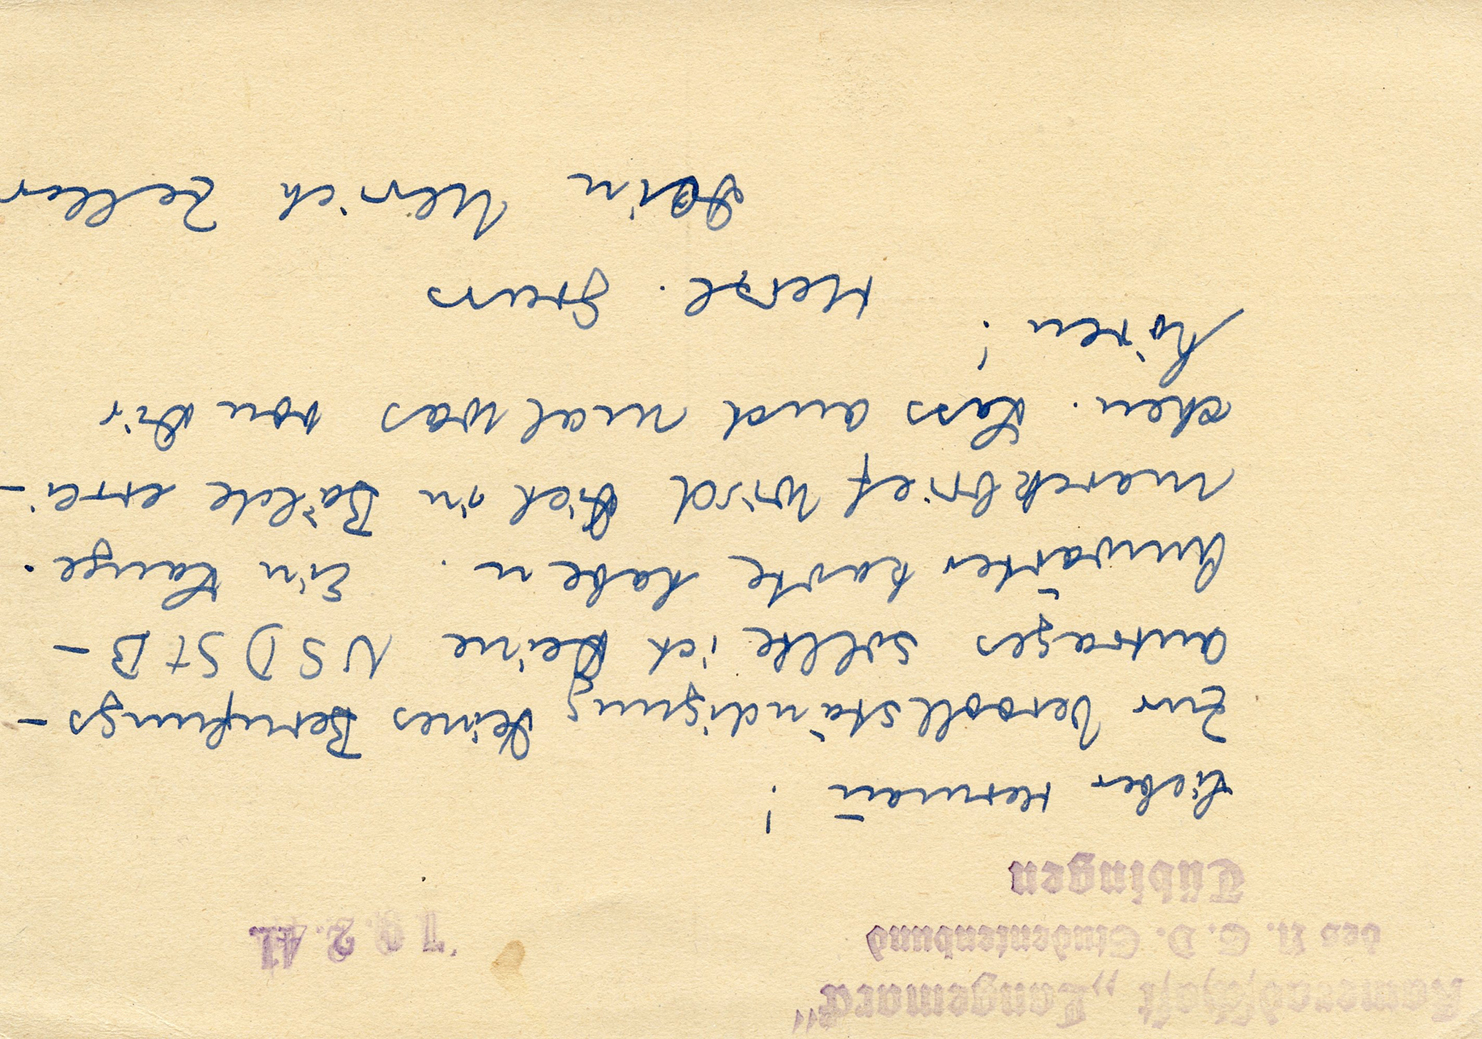 Kameradschaft „Langemarck"
des N. S. D. Studentenbund
Tübingen
1 9. 2. 41
Lieber Hermañ!
Zur Vervollständigung Deines Berufungs-
antrages sollte ich Deine NSDStB-
Anwärterkarte haben. Ein Lange-
marckbrief wird Dich in Bälde errei-
chen. Lass auch mal was von Dir
hören!
Herzl. Gruss
Dein Ulrich Zeller